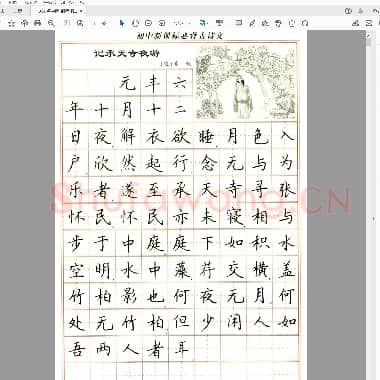 初中新课标必背古诗文
记承天寺夜游
元丰六
年十月十二
日夜解衣欲睡月色入
户欣然起行念无与为
乐者遂至承天寺寻张
怀民怀民亦未寝相与
步于中庭庭下如积水
空明水中藻荇交横盖
竹柏影也何夜无月何
处无竹柏但少闲人如
吾两人者耳
Shufawang.CN